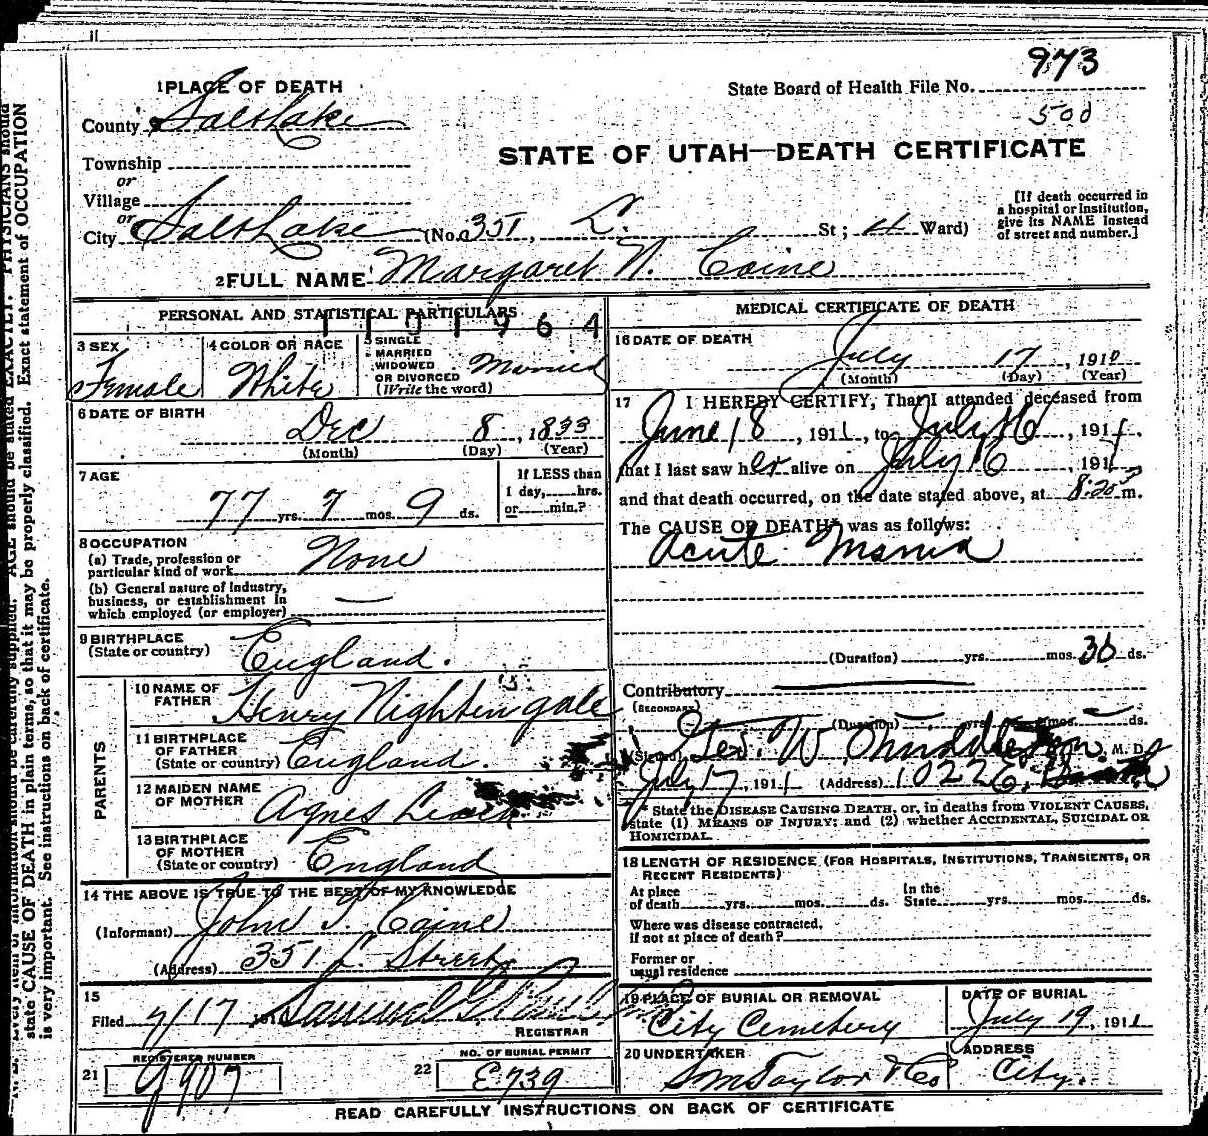 973
1 PLACE OF DEATH
State Board of Health File No.
500
County Salt Lake
STATE OF UTAH—DEATH CERTIFICATE
Township
or
Village
or
City Salt Lake (No. 351, L. St; 4 Ward)
[If death occurred in a hospital or institution, give its NAME instead of street and number.]
2 FULL NAME Margaret N. Caine
PERSONAL AND STATISTICAL PARTICULARS
1101964
3 SEX
Female
4 COLOR OR RACE
White
5 SINGLE
MARRIED
WIDOWED
OR DIVORCED
(Write the word)
Married
6 DATE OF BIRTH
Dec 8, 1833
(Month) (Day) (Year)
7 AGE
77 yrs. 7 mos. 9 ds.
If LESS than
1 day,....hrs.
or....min.?
8 OCCUPATION
(a) Trade, profession or
particular kind of work
None
(b) General nature of industry,
business, or establishment in
which employed (or employer)
—
9 BIRTHPLACE
(State or country)
England.
PARENTS
10 NAME OF
FATHER
Henry Nightengale
11 BIRTHPLACE
OF FATHER
(State or country)
England.
12 MAIDEN NAME
OF MOTHER
Agnes Leach
13 BIRTHPLACE
OF MOTHER
(State or country)
England
14 THE ABOVE IS TRUE TO THE BEST OF MY KNOWLEDGE
(Informant) John T. Caine
(Address) 351 L. Street,
15
Filed 7/17 191
REGISTRAR
21
REGISTERED NUMBER
9907
22
NO. OF BURIAL PERMIT
E739
MEDICAL CERTIFICATE OF DEATH
16 DATE OF DEATH
July 17, 191
(Month) (Day) (Year)
17 I HEREBY CERTIFY, That I attended deceased from
June 18, 1911, to July 16, 1911.
that I last saw her alive on July 16, 1911
and that death occurred, on the date stated above, at 8:20 m.
The CAUSE OF DEATH* was as follows:
Acute Mania
(Duration) yrs. mos. 30 ds.
Contributory
(SECONDARY)
(Duration) yrs. mos. ds.
(Signed) Geo. W. Middleton. M. D.
July 17, 1911 (Address) 1022 E.
* State the DISEASE CAUSING DEATH, or, in deaths from VIOLENT CAUSES,
state (1) MEANS OF INJURY; and (2) whether ACCIDENTAL, SUICIDAL OR
HOMICIDAL.
18 LENGTH OF RESIDENCE (FOR HOSPITALS, INSTITUTIONS, TRANSIENTS, OR
RECENT RESIDENTS)
At place
of death yrs. mos. ds.
In the
State yrs. mos. ds.
Where was disease contracted,
if not at place of death?
Former or
usual residence
19 PLACE OF BURIAL OR REMOVAL
City Cemetery
DATE OF BURIAL
July 19, 1911
20 UNDERTAKER
S M Taylor & Co
ADDRESS
City.
READ CAREFULLY INSTRUCTIONS ON BACK OF CERTIFICATE
AGE should be stated EXACTLY. PHYSICIANS should
state CAUSE OF DEATH in plain terms, so that it may be properly classified. Exact statement of OCCUPATION
is very important. See instructions on back of certificate.